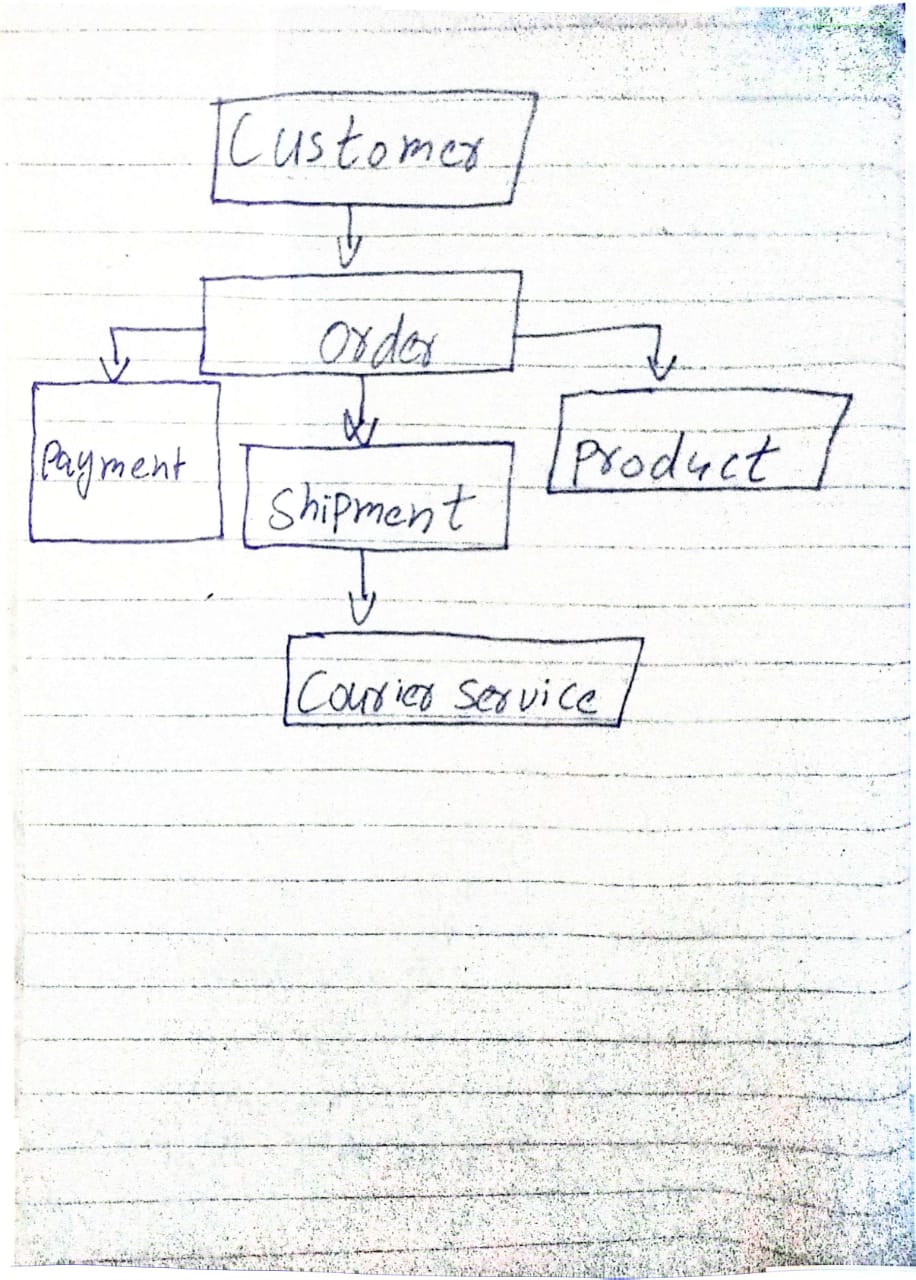 Customer
Order
Payment
Shipment
Product
Courier Service